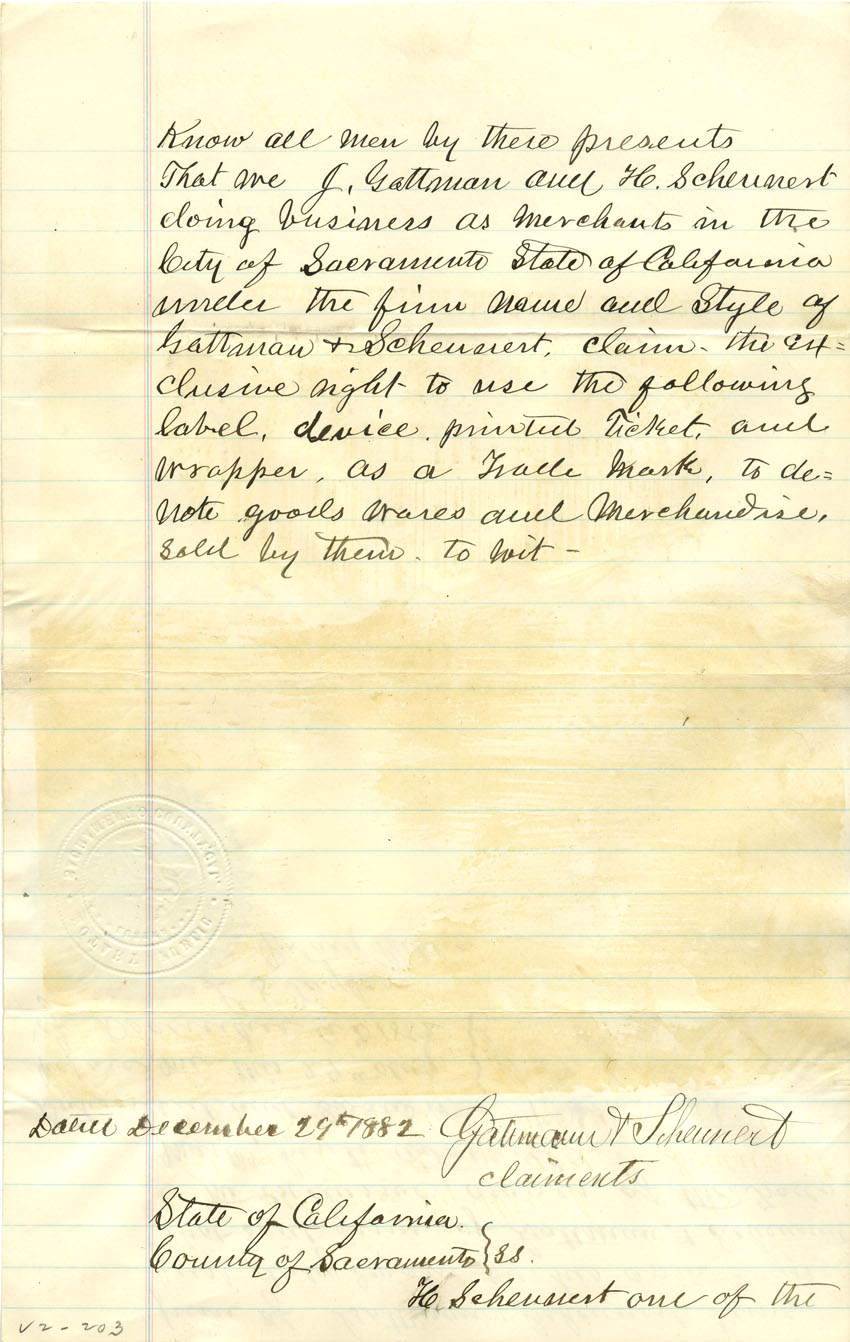 Know all men by these presents
That we J. Gattman and H. Scheunert
doing business as Merchants in the
City of Sacramento State of California
under the firm name and Style of
Gattman & Scheunert, claim the ex=
clusive right to use the following
label, device, printed Ticket, and
wrapper, as a Trade Mark, to de=
note goods wares and Merchandise,
sold by them. to wit -
Dated December 29th 1882 Gattmann & Scheunert
claiments
State of California.
County of Sacramento } ss.
H Scheunert one of the
V2-203